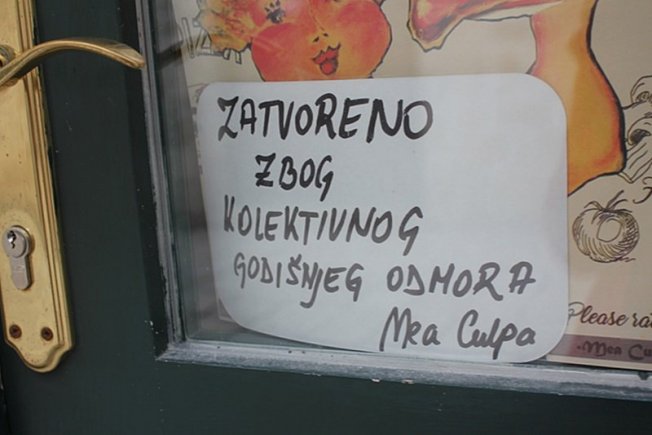 ZATVORENO
ZBOG
KOLEKTIVNOG
GODIŠNJEG ODMORA
Mea Culpa
Please
-Mea